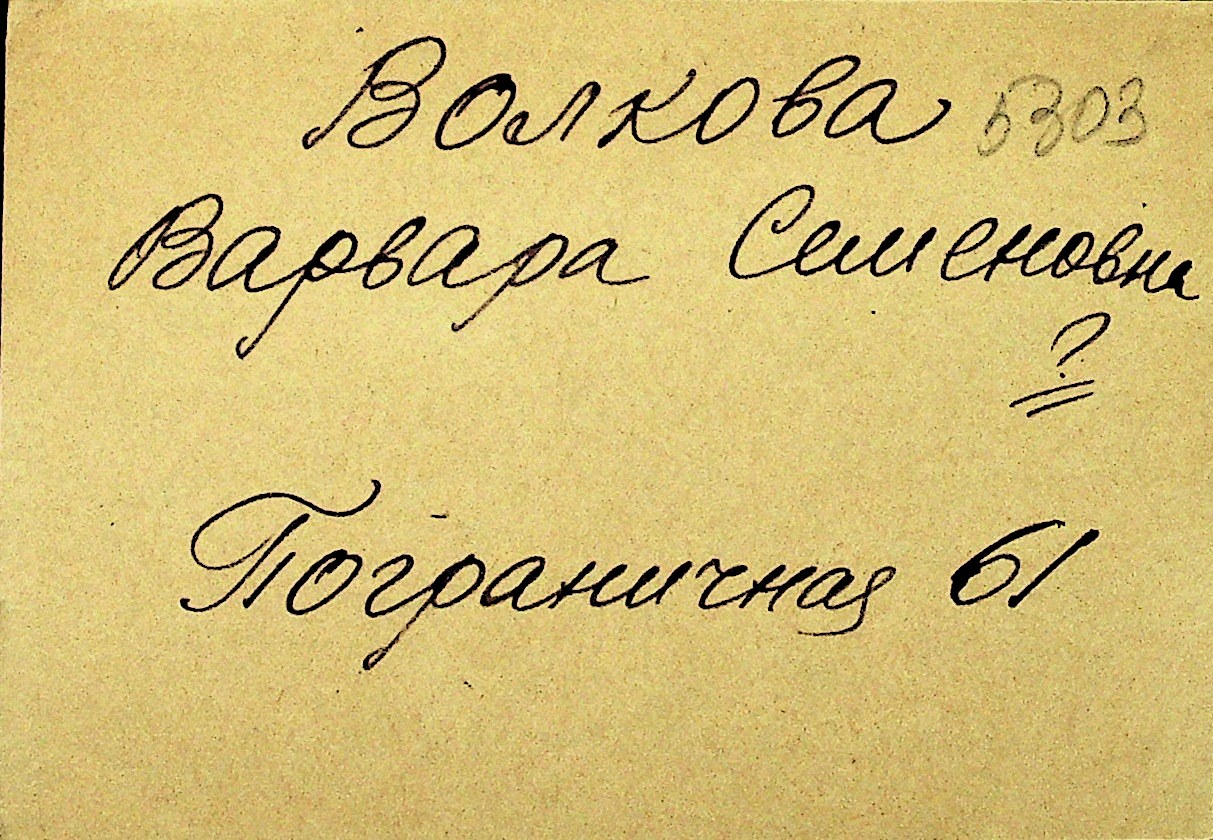 Волкова 5303
Варвара Семеновна
?
Пограничная 61